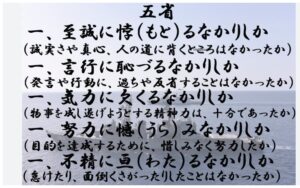 五省
一、至誠に悖(もと)るなかりしか
(誠実さや真心、人の道に背くところはなかったか)
一、言行に恥づるなかりしか
(発言や行動に、過ちや反省することはなかったか)
一、気力に欠くるなかりしか
(物事を成し遂げようとする精神力は、十分であったか)
一、努力に憾(うら)みなかりしか
(目的を達成するために、惜しみなく努力したか)
一、不精に亘(わた)るなかりしか
(怠けたり、面倒くさがったりしたことはなかったか)